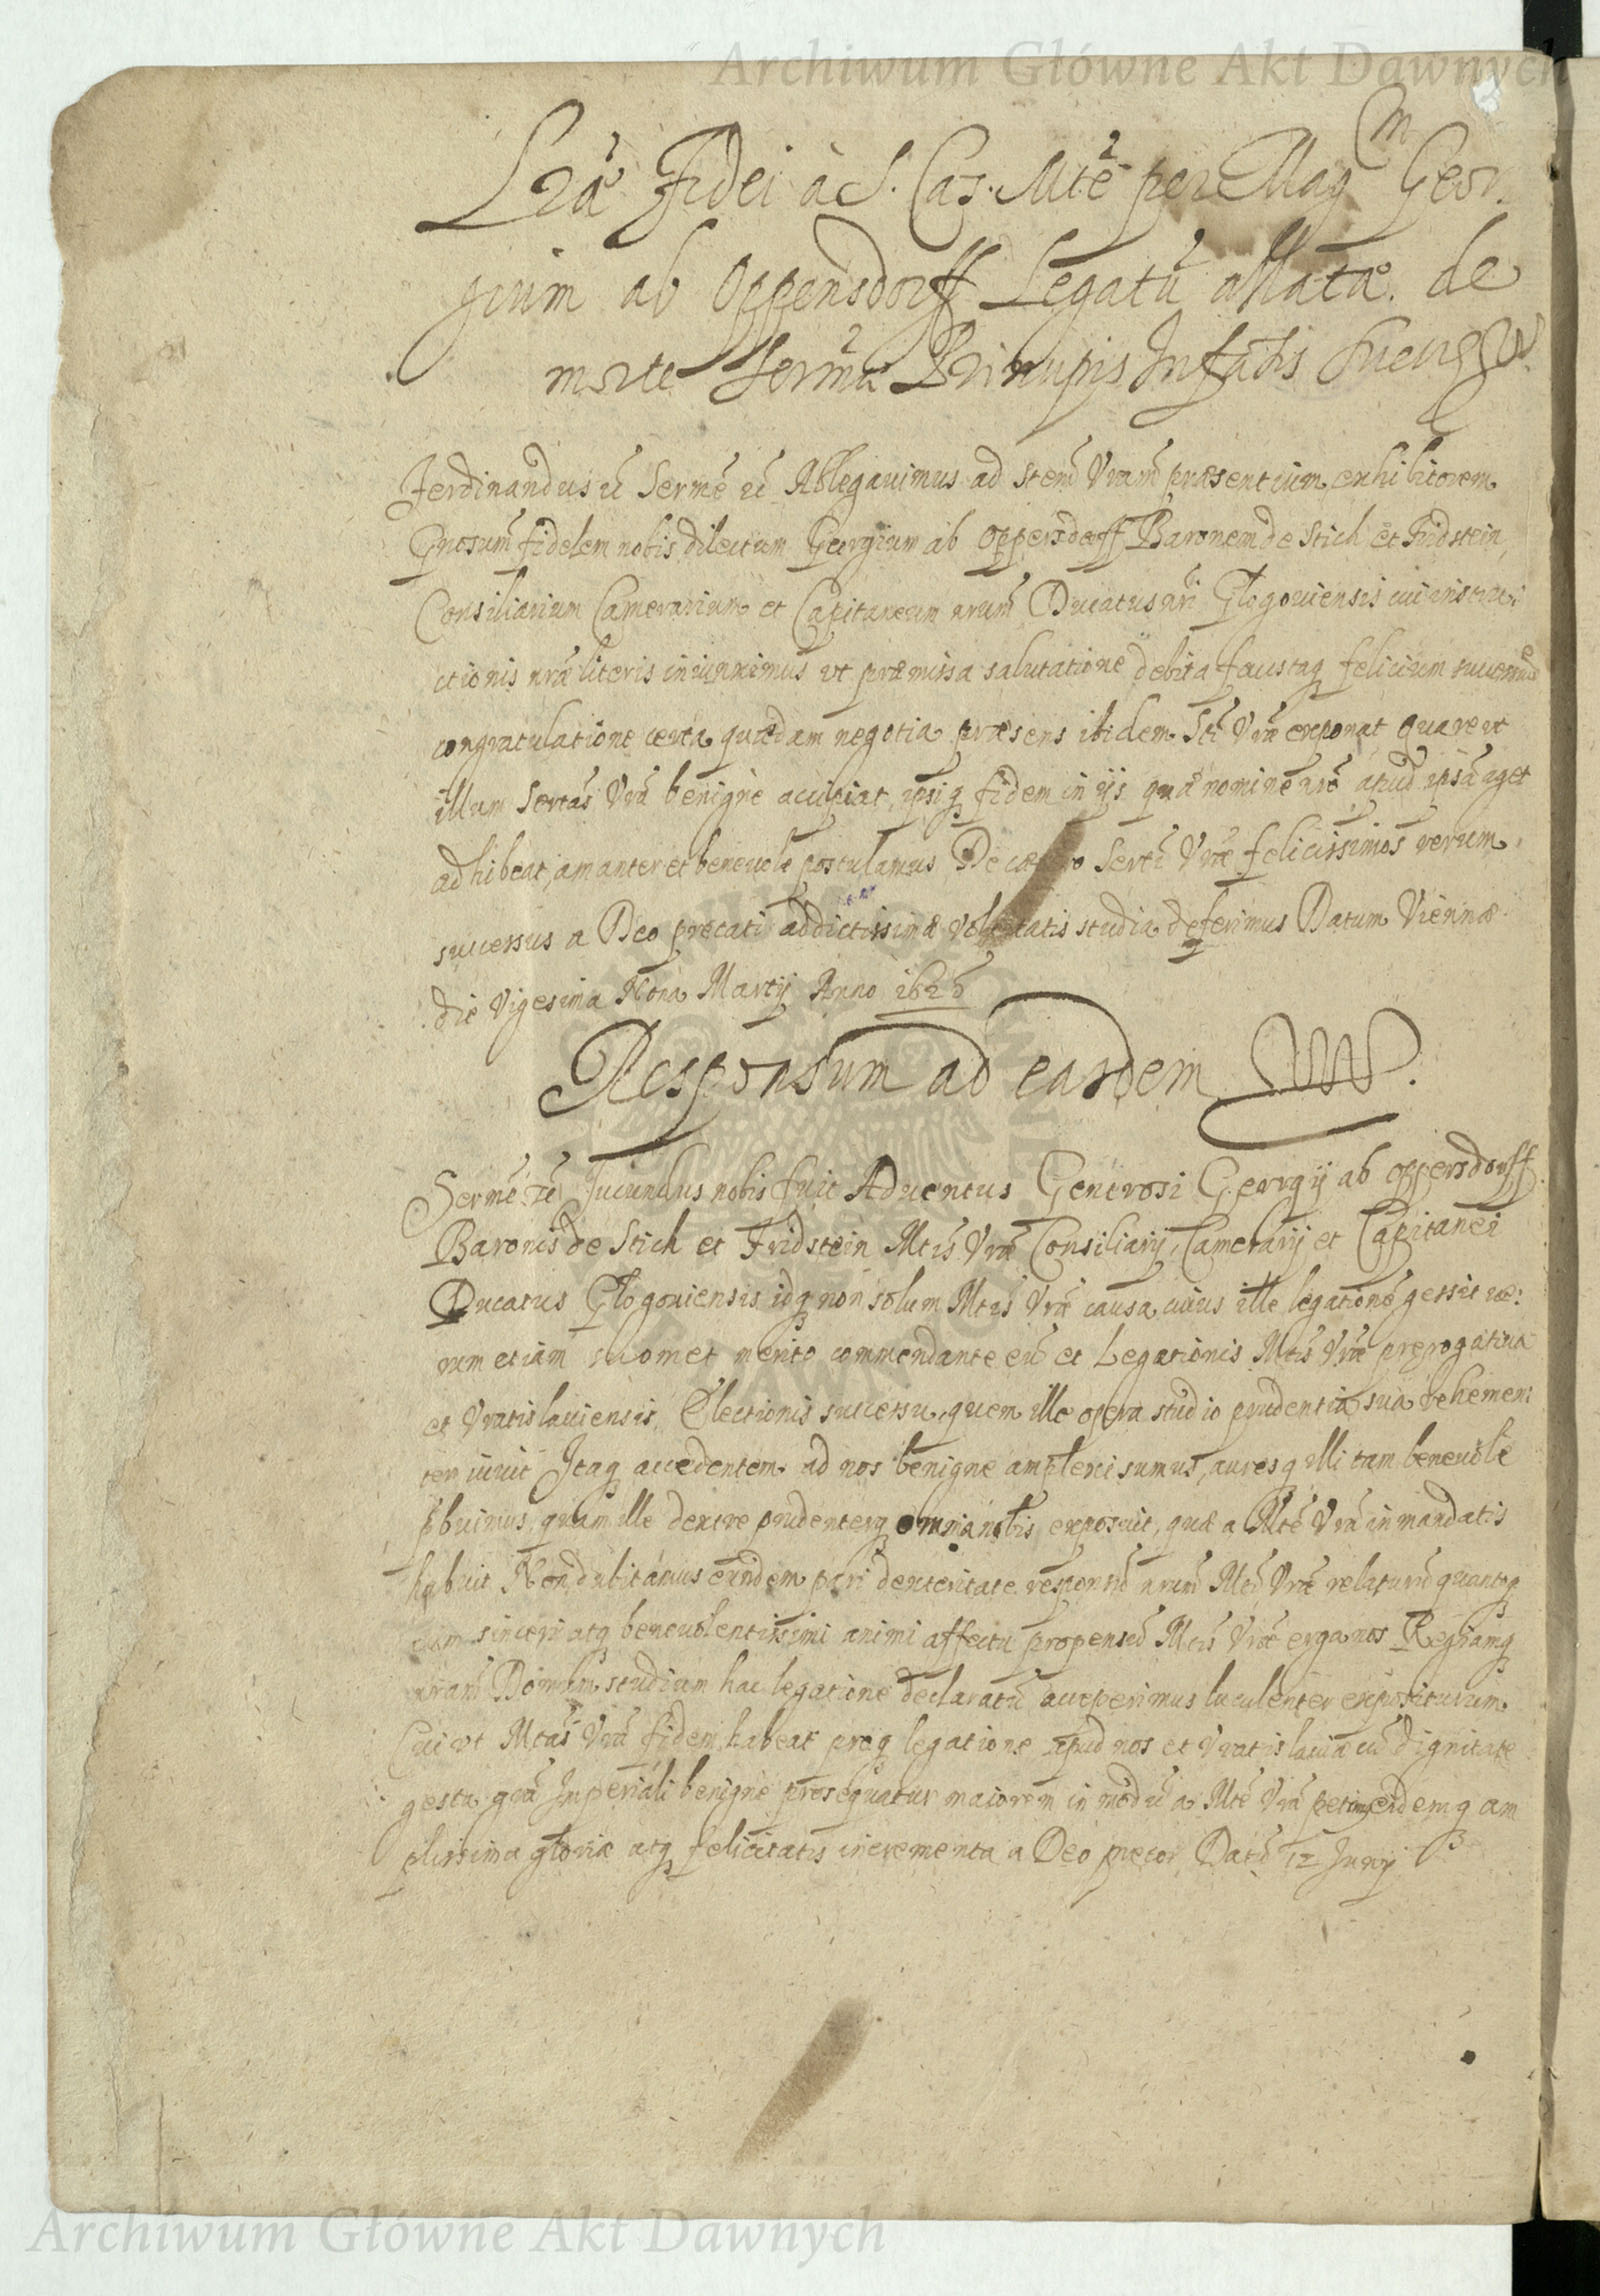 Archiwum Główne Akt Dawnych
Lrã Fidei à S. Cas. Mtẽ per Mag^m Geor
gium ab Oppensdorff Legatũ allatæ. de
morte Sermi Principis Infãtis
Ferdinandus &c Sermẽ &c Ablegauimus ad Stem̃ Vram̃ præsentium exhibitorem
Gnosum̃ fidelem nobis dilectum Georgium ab Oppersdorff Baronem de Stich et Fridstein,
Consiliarium Camerarium et Capitaneum nrum̃ Ducatus nri Glogouiensis cui instru
ctionis nræ literis iniunximus vt præmissa salutatione debita faustaq felicium successuũ
congratulatione certa quædam negotia præsens ibidem Sti Vræ exponat Quare vt
illum Sertas Vrã benigne accipiat, ipsiq fidem in ijs quæ nomine nrõ apud ipsã aget
adhibeat, amanter et beneuole postulamus De cætero Serti Vræ felicissimos rerum
successus a Deo precati addictissimæ voluntatis studia deferimus Datum Viennæ
die Vigesima Nona Martij Anno 1625
Responsum ad easdem
Sermẽ &c Iucundus nobis fuit Aduentus Generosi Georgij ab Oppersdorff
Baronis de Stich et Fridstein Mtis Vræ Consiliarij, Camerarij et Capitanei
Ducatus Glogouiensis idq non solum Mtis Vræ causa, cuius ille legationẽ gessit ve:
rum etiam suomet merito commendante eũ et Legationis Mtis Vræ prerogatiua
et Vratislauiensis Electionis successu, quem ille opera studio prudentia sua vehemen:
ter iuuit Itaq accedentem ad nos benigne amplexi sumus, auresq illi tam beneuole
pbuimus, quam ille dextre prudenterq omnia nobis exposuit, quæ a Mtẽ Vrã in mandatis
habuit Non dubitamus eundem pari dexteritate responsũ nrum̃ Mti Vræ relaturũ quantoq
cum sinceri atq beneuolentissimi animi affectu propensũ Mtis Vræ erga nos Regiamq
nram̃ Domũ studium hac legatione declaratũ acceperimus luculenter expositurum
Cui vt Mtas Vrã fidem habeat proq legatione apud nos et Vratislauiæ cũ dignitate
gesta grã Imperiali benigne prosequatur maiorem in modũ a Mtẽ Vrã petimus eidemq am
plissima gloriæ atq felicitatis incrementa a Deo precor Datũ 12 Junij
Archiwum Główne Akt Dawnych